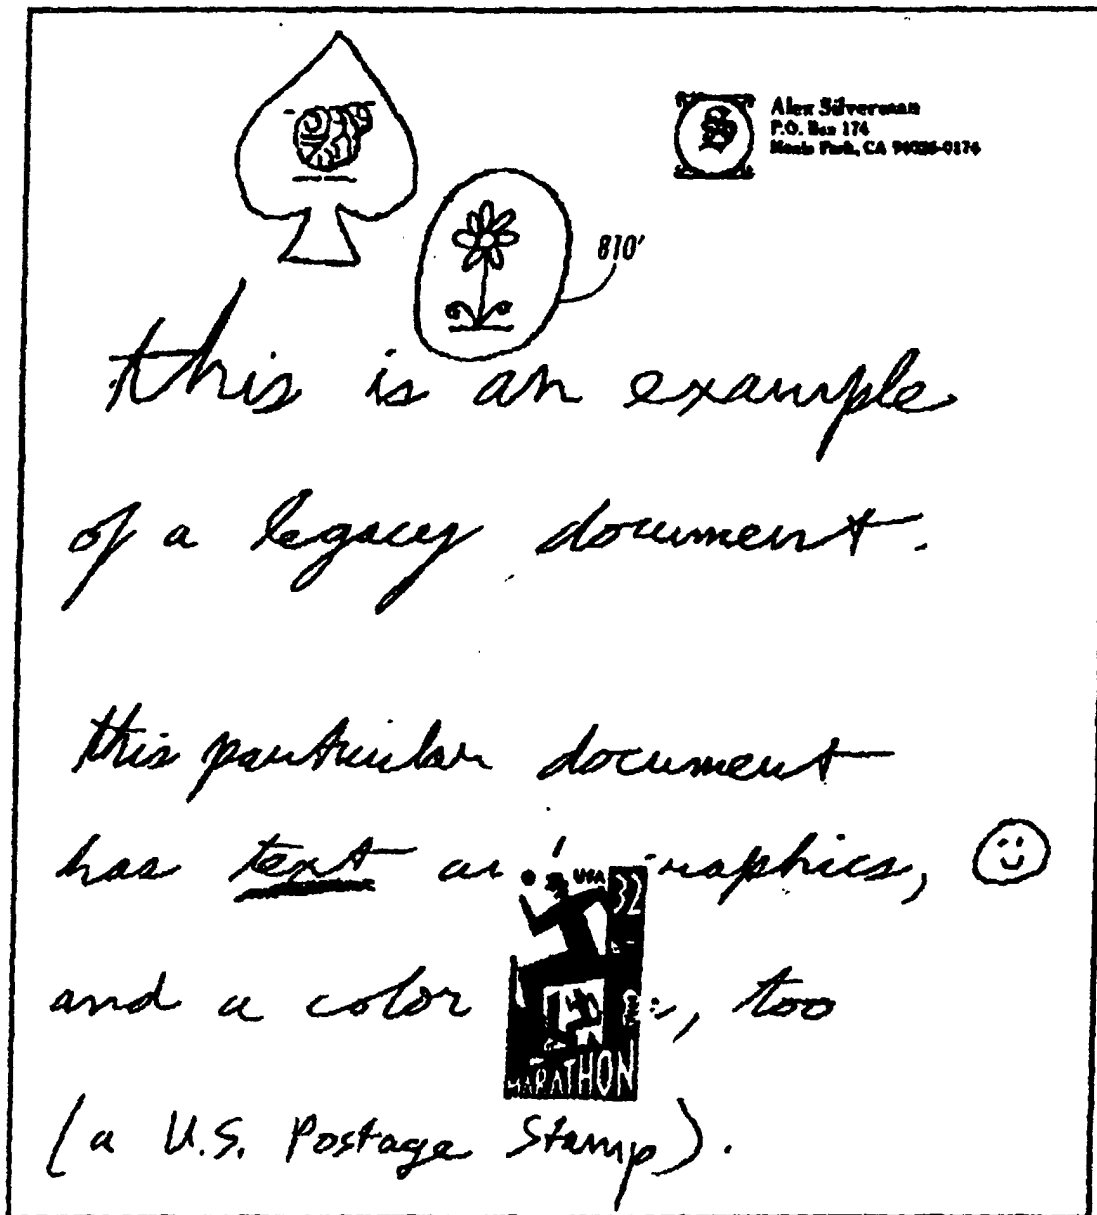 Alex Silverman
P.O. Box 174
Menlo Park, CA 94026-0174
810'
this is an example
of a legacy document.
this particular document
has text graphics,
and a color , too
USA
32
MARATHON
(a U.S. Postage Stamp).